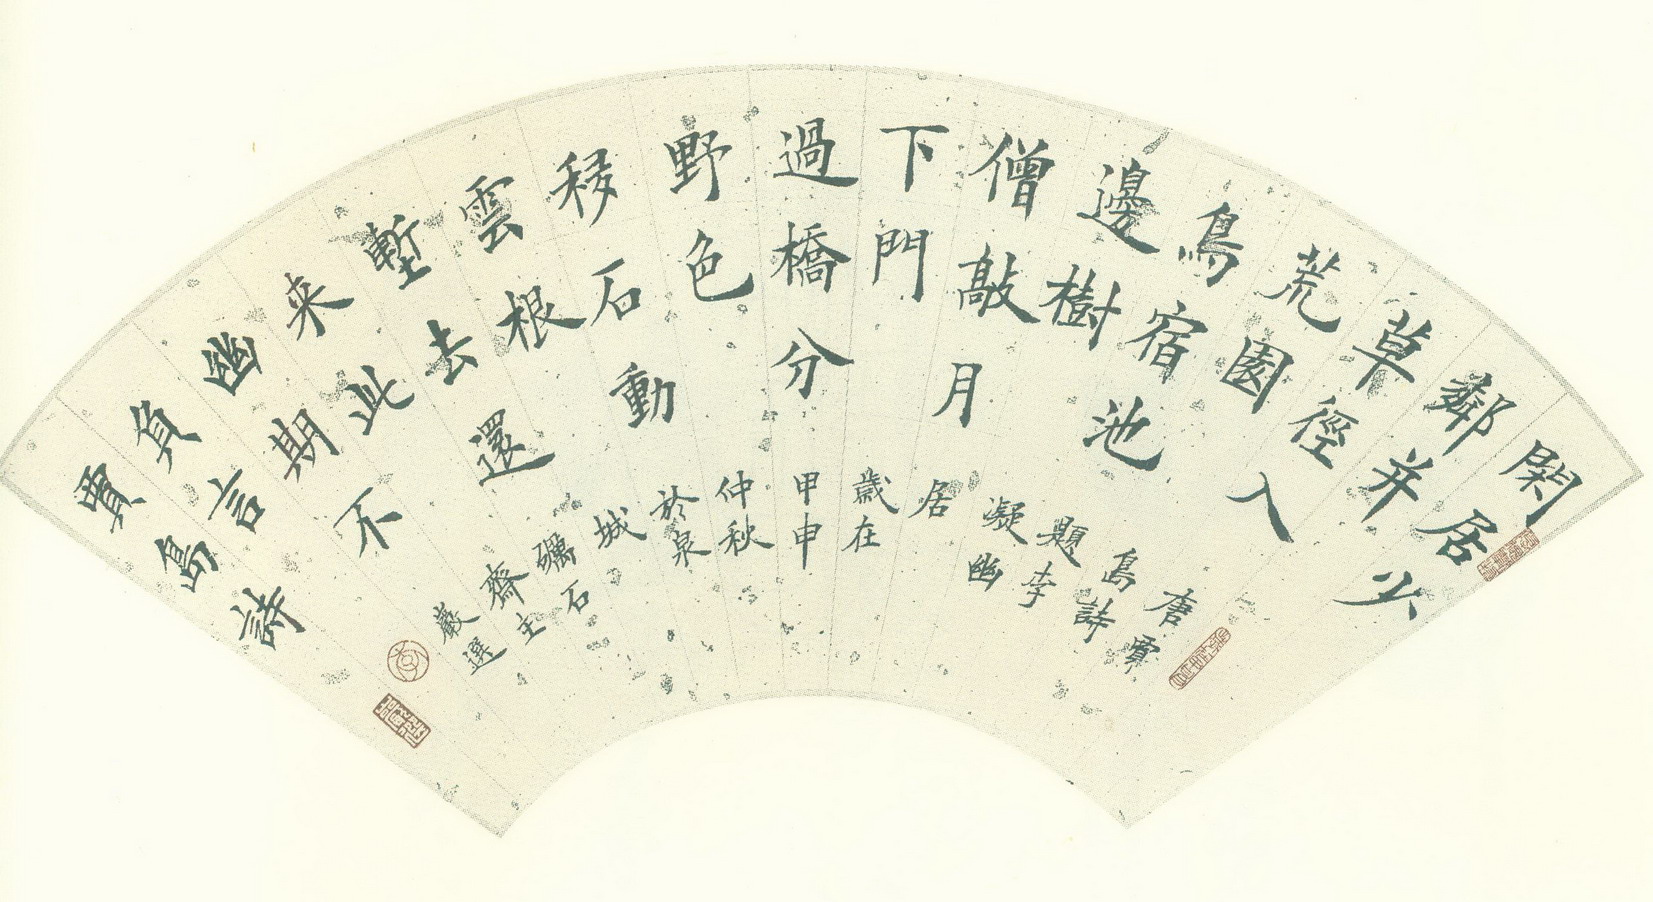 閑居少
鄰并
草徑入
荒園
鳥宿池
邊樹
僧敲月
下門
過橋分
野色
移石動
雲根
塹去還
来此
幽期不
負言
賈島詩
唐賈
島詩
題李
凝幽
居
歲在
甲申
仲秋
於泉
城
礪石
齋主
嚴選